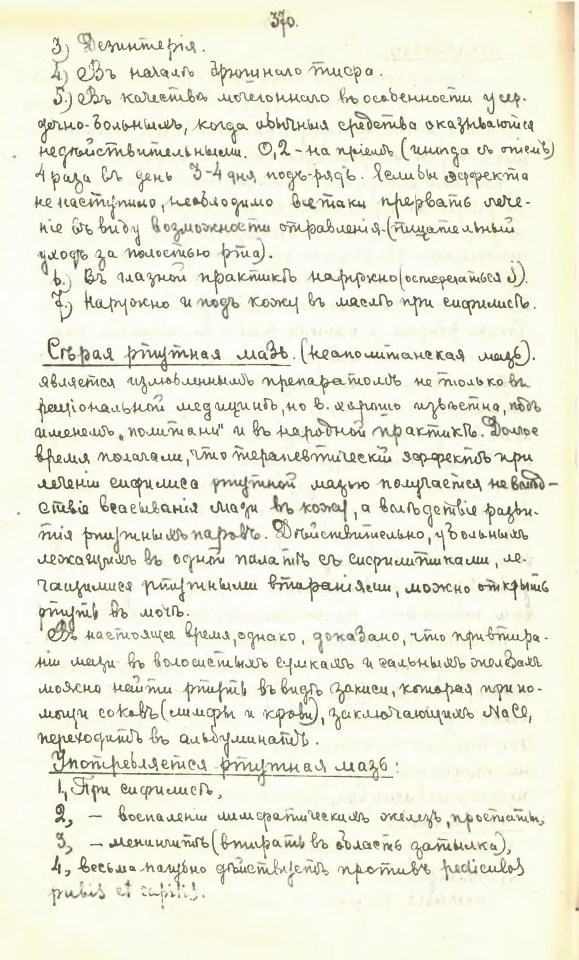 370.
3.) Дезинтерія.
4.) Въ началѣ брюшнаго тифа.
5.) Въ качествѣ мочегоннаго въ особенности у сер-
дечно-больныхъ, когда обычныя средства оказываются
недѣйствительными. 0,2 - на пріемъ (иногда съ опіемъ)
4 раза въ день 3-4 дня подъ-рядъ. Если бы эффекта
не наступило, необходимо всетаки прервать лече-
ніе въ виду возможности отравленія. (тщательный
уходъ за полостью рта).
6.) Въ глазной практикѣ наружно (остерегаться J).
7.) Наружно и подъ кожу въ маслѣ при сифилисѣ.
Сѣрая ртутная мазь. (неаполитанская мазь).
является излюбленнымъ препаратомъ не только въ
раціональной медицинѣ, но и хорошо извѣстна, подъ
именемъ „политани" и въ народной практикѣ. Долгое
время полагали, что терапевтическій эффектъ при
леченіи сифилиса ртутной мазью получается не вслѣд-
ствіе всасыванія мази въ кожу, а вслѣдствіе разви-
тія ртутныхъ паровъ. Дѣйствительно, у больныхъ
лежащихъ въ одной палатѣ съ сифилитиками, ле-
чащимися ртутными втираніями, можно открыть
ртуть въ мочѣ.
Въ настоящее время, однако, доказано, что при втира-
ніи мази въ волосистыхъ сумкахъ и сальныхъ железахъ
можно найти ртуть въ видѣ закиси, которая при по-
мощи соковъ (лимфы и крови), заключающихъ NaCl,
переходитъ въ альбуминатъ.
Употребляется ртутная мазь:
1, При сифилисѣ,
2, - воспаленіи лимфатическихъ железъ, простаты,
3, - менингитѣ (втирать въ область затылка),
4, весьма пагубно дѣйствуетъ противъ pediculos
pubis et capitis.